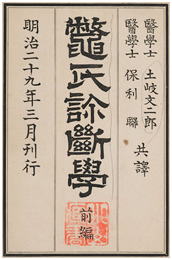 醫學士 土岐文二郎
醫學士 保利 聯 共譯
鼈氏診斷學
前編
明治二十九年三月刊行